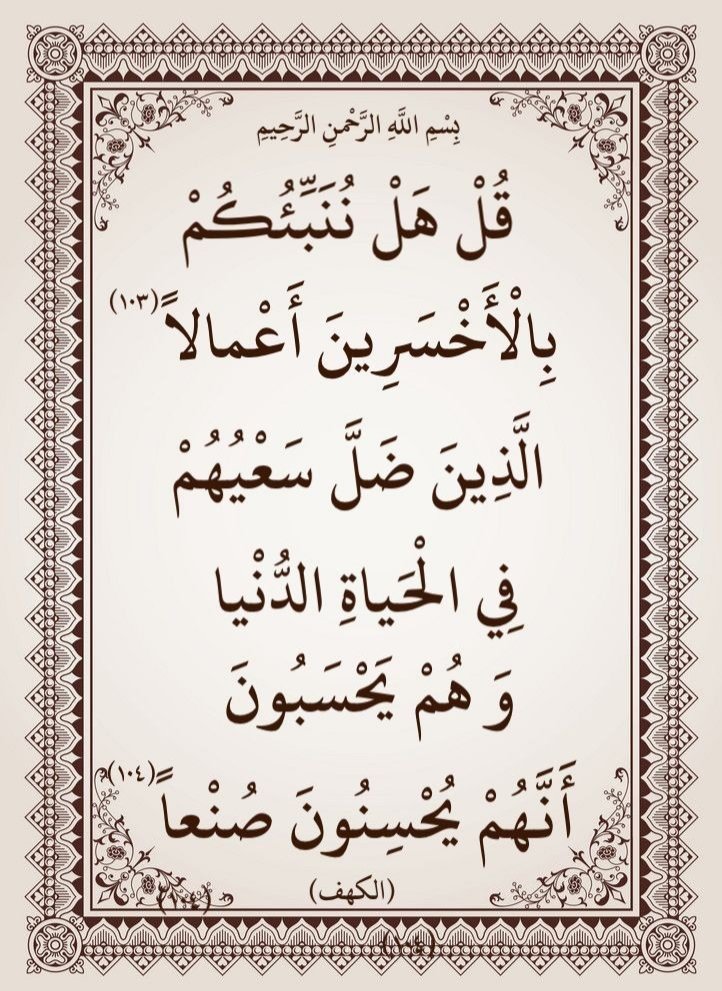 بِسْمِ اللَّهِ الرَّحْمنِ الرَّحِيمِ
قُلْ هَلْ نُنَبِّئُكُمْ
بِالْأَخْسَرِينَ أَعْمالاً (١٠٣)
الَّذِينَ ضَلَّ سَعْيُهُمْ
فِي الْحَياةِ الدُّنْيا
وَ هُمْ يَحْسَبُونَ
أَنَّهُمْ يُحْسِنُونَ صُنْعاً (١٠٤)
(الكهف)
(١٠٤)